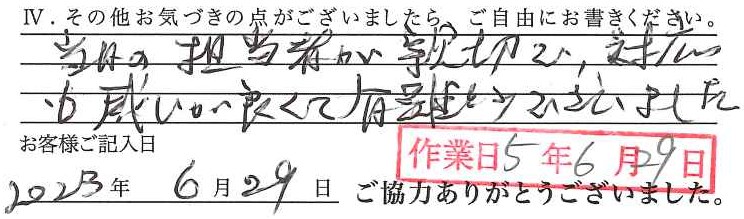 Ⅳ．その他お気づきの点がございましたら、ご自由にお書きください。
当日の担当者が親切で、対応
も感じが良くて有難とうございました
お客様ご記入日
作業日5年6月29日
2023年 6月29日 ご協力ありがとうございました。